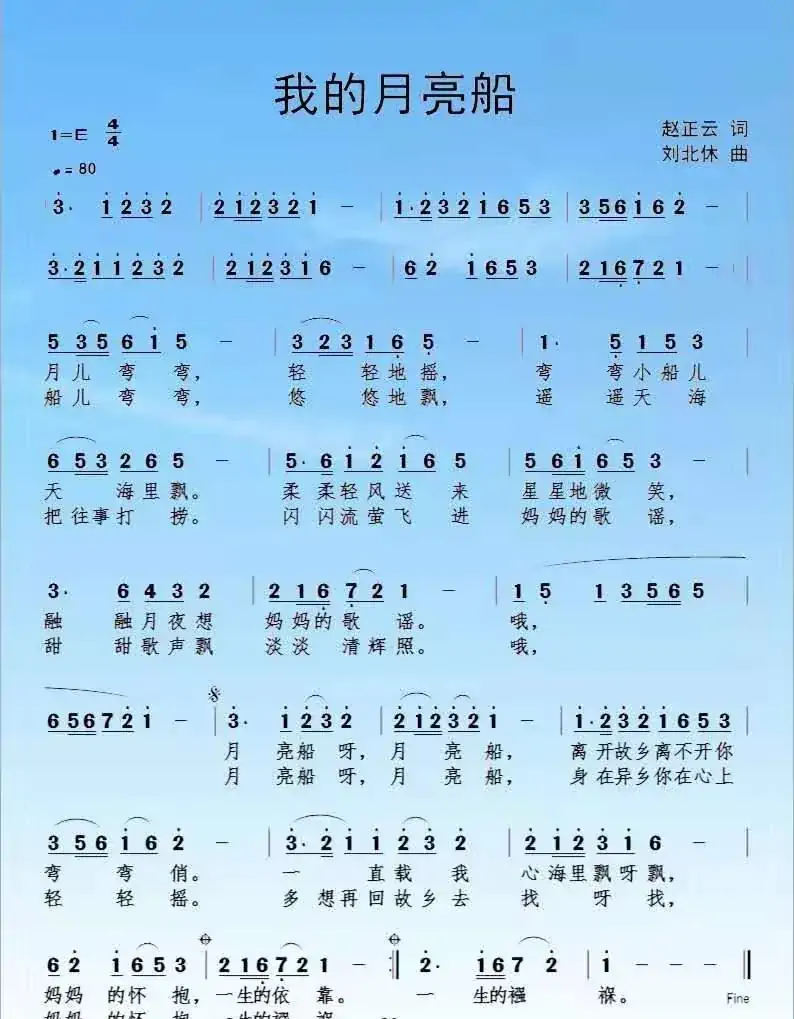 我的月亮船
1=E 4/4
赵正云 词
刘北休 曲
♩= 80
3· 1 2 3 2 | 2 1 2 3 2 1 － | 1·2 3 2 1 6 5 3 | 3 5 6 1 6 2 － |
3·2 1 1 2 3 2 | 2 1 2 3 1 6 － | 6 2 1 6 5 3 | 2 1 6 7 2 1 － |
5 3 5 6 1 5 － | 3 2 3 1 6 5 － | 1· 5 1 5 3 |
月儿弯弯, 轻 轻地摇, 弯 弯小船儿
船儿弯弯, 悠 悠地飘, 遥 遥天 海
6 5 3 2 6 5 － | 5·6 1 2 1 6 5 | 5 6 1 6 5 3 － |
天 海里飘。 柔柔轻风送 来 星星地微 笑,
把往事打 捞。 闪闪流萤飞 进 妈妈的歌 谣,
3· 6 4 3 2 | 2 1 6 7 2 1 － | 1 5 1 3 5 6 5 |
融 融月夜想 妈妈的歌 谣。 哦,
甜 甜歌声飘 淡淡 清辉照。 哦,
6 5 6 7 2 1 － | 3· 1 2 3 2 | 2 1 2 3 2 1 － | 1·2 3 2 1 6 5 3 |
月 亮船呀, 月 亮 船, 离开故乡离不开你
月 亮船呀, 月 亮 船, 身在异乡你在心上
3 5 6 1 6 2 － | 3·2 1 1 2 3 2 | 2 1 2 3 1 6 － |
弯 弯 俏。 一 直载 我 心海里飘呀飘,
轻 轻 摇。 多想再回故乡去 找 呀 找,
6 2 1 6 5 3 | 2 1 6 7 2 1 － :‖ 2· 1 6 7 2 | 1 － － ‖
妈妈 的怀 抱, 一生的依 靠。 一 生的襁 褓。 Fine
妈妈 的怀 抱, 一生的依 靠。